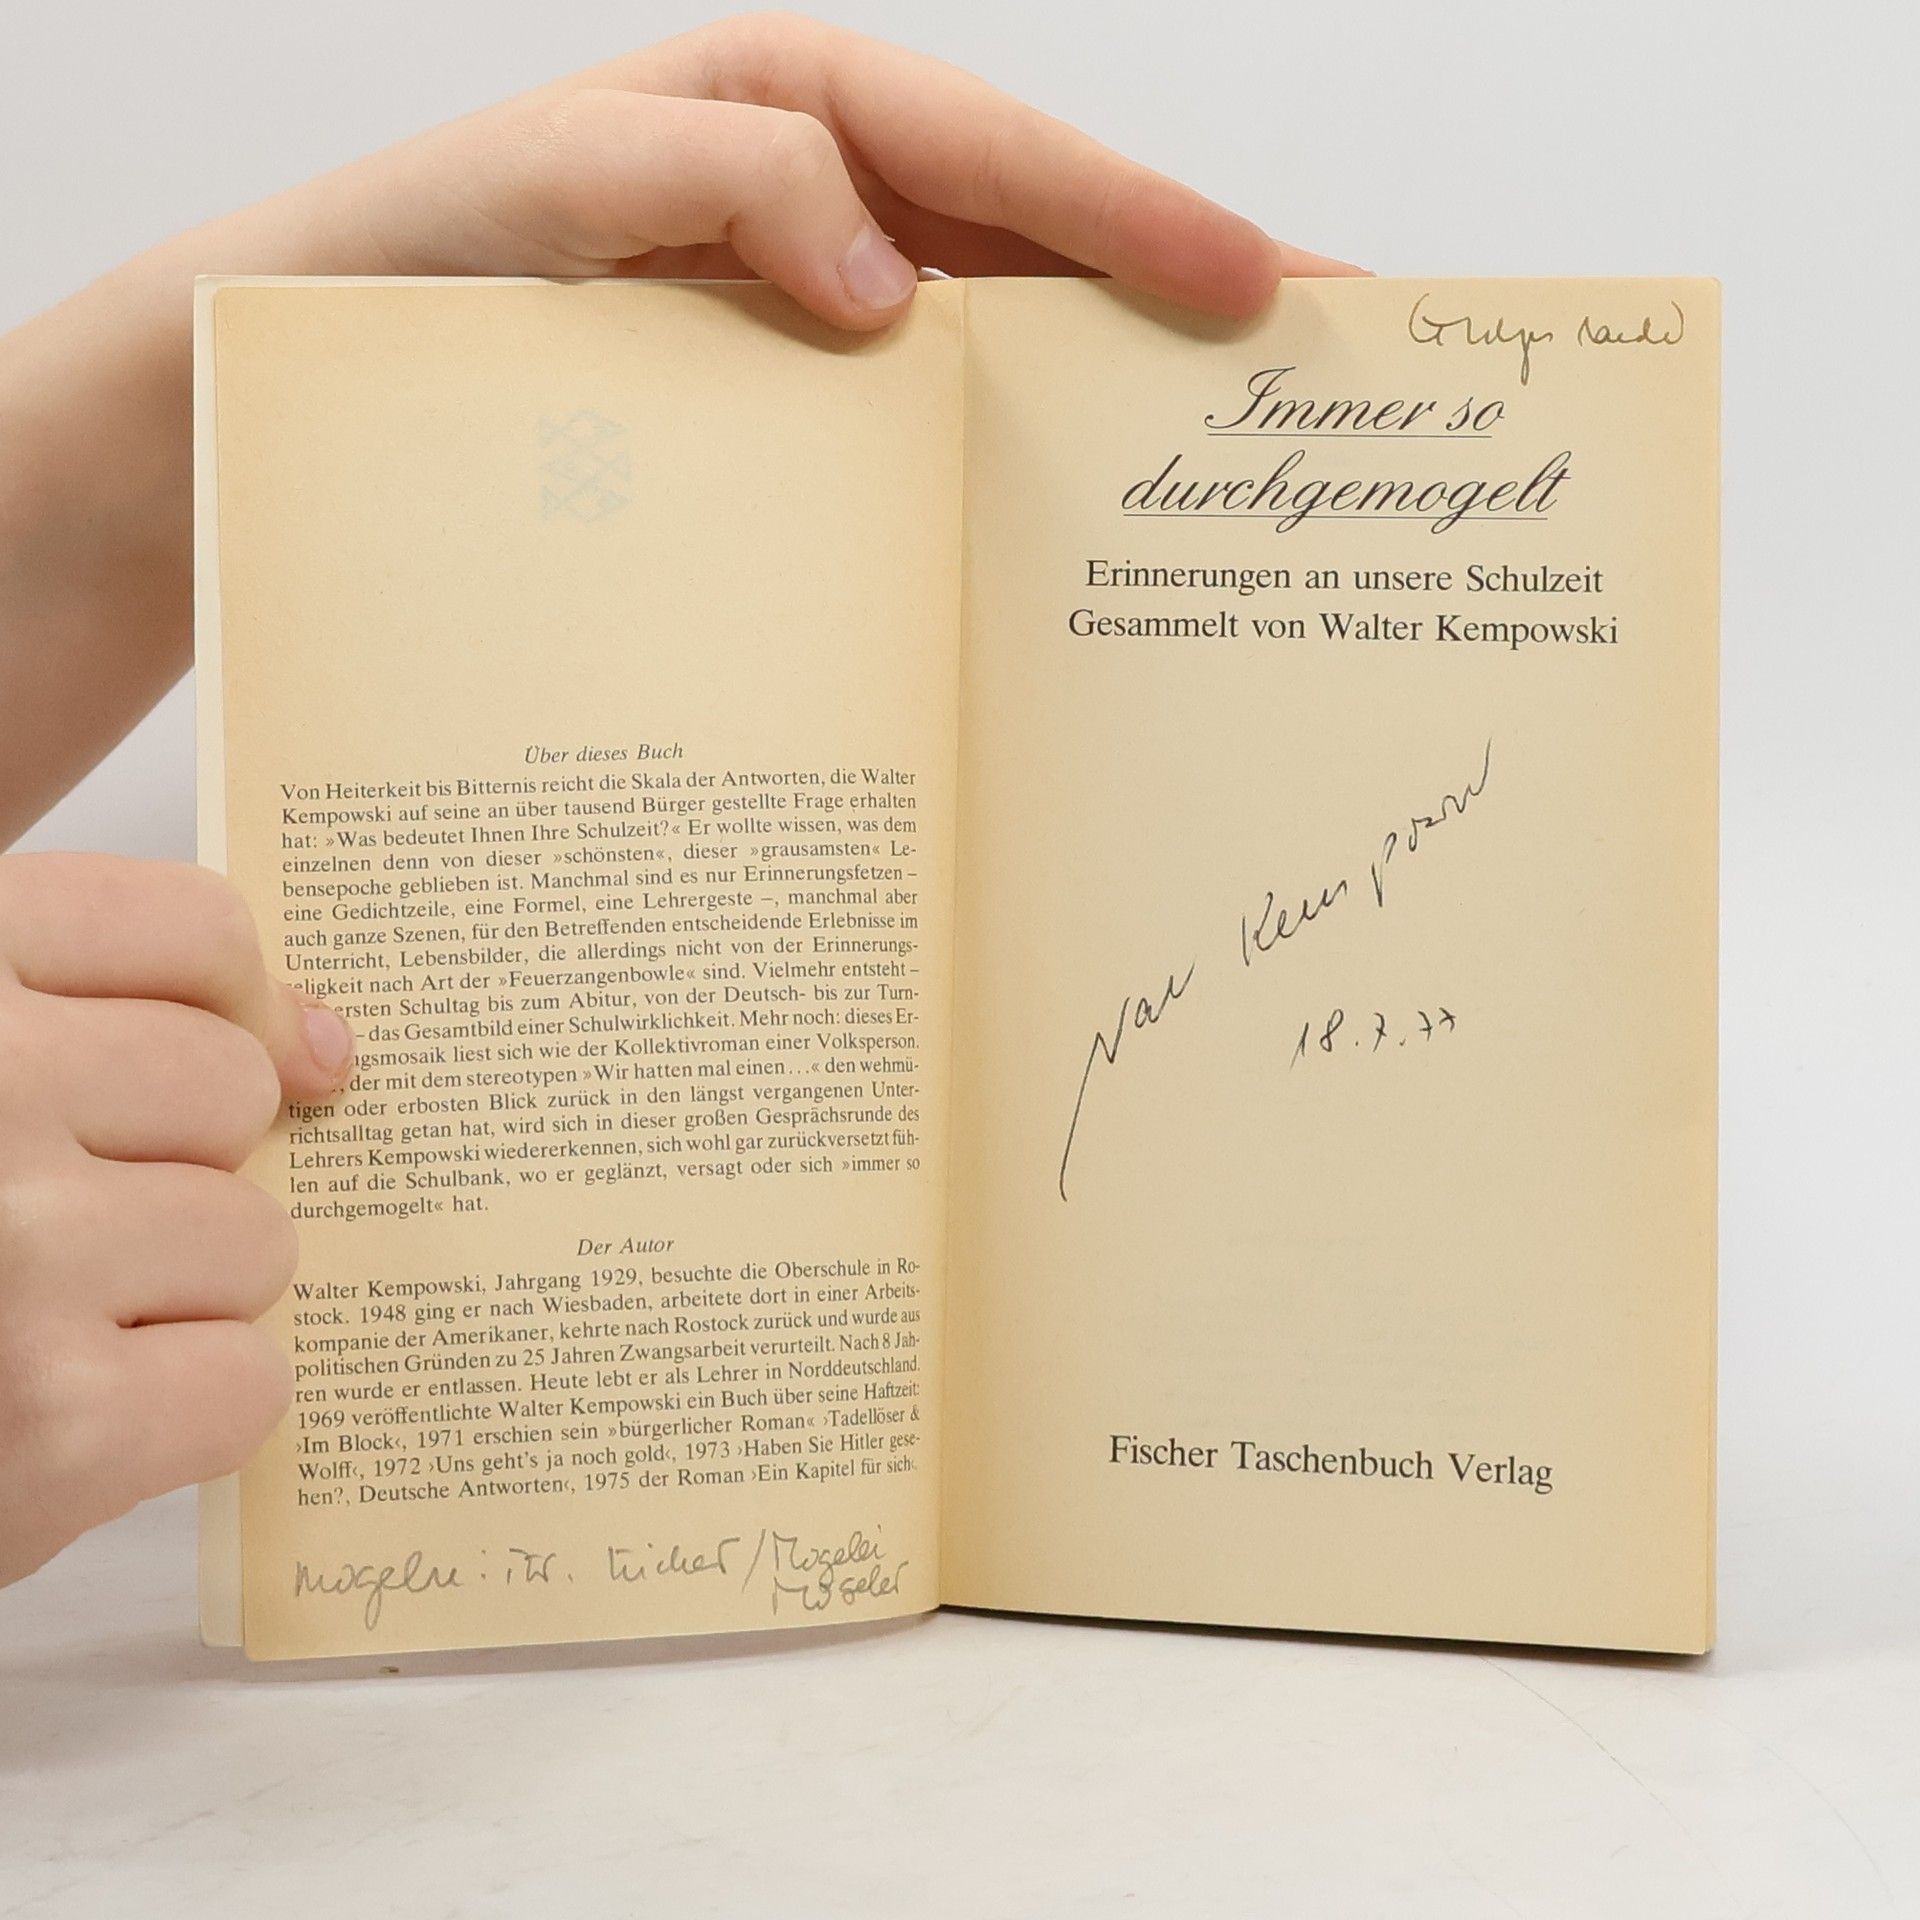 Über dieses Buch
Von Heiterkeit bis Bitternis reicht die Skala der Antworten, die Walter
Kempowski auf seine an über tausend Bürger gestellte Frage erhalten
hat: »Was bedeutet Ihnen Ihre Schulzeit?« Er wollte wissen, was dem
einzelnen denn von dieser »schönsten«, dieser »grausamsten« Le-
bensepoche geblieben ist. Manchmal sind es nur Erinnerungsfetzen –
eine Gedichtzeile, eine Formel, eine Lehrergeste –, manchmal aber
auch ganze Szenen, für den Betreffenden entscheidende Erlebnisse im
Unterricht, Lebensbilder, die allerdings nicht von der Erinnerungs-
seligkeit nach Art der »Feuerzangenbowle« sind. Vielmehr entsteht –
ersten Schultag bis zum Abitur, von der Deutsch- bis zur Turn-
– das Gesamtbild einer Schulwirklichkeit. Mehr noch: dieses Er-
ngsmosaik liest sich wie der Kollektivroman einer Volksperson.
, der mit dem stereotypen »Wir hatten mal einen...« den wehmü-
tigen oder erbosten Blick zurück in den längst vergangenen Unter-
richtsalltag getan hat, wird sich in dieser großen Gesprächsrunde des
Lehrers Kempowski wiedererkennen, sich wohl gar zurückversetzt füh-
len auf die Schulbank, wo er geglänzt, versagt oder sich »immer so
durchgemogelt« hat.
Der Autor
Walter Kempowski, Jahrgang 1929, besuchte die Oberschule in Ro-
stock. 1948 ging er nach Wiesbaden, arbeitete dort in einer Arbeits-
kompanie der Amerikaner, kehrte nach Rostock zurück und wurde aus
politischen Gründen zu 25 Jahren Zwangsarbeit verurteilt. Nach 8 Jah-
ren wurde er entlassen. Heute lebt er als Lehrer in Norddeutschland.
1969 veröffentlichte Walter Kempowski ein Buch über seine Haftzeit:
›Im Block‹, 1971 erschien sein »bürgerlicher Roman« ›Tadellöser &
Wolff‹, 1972 ›Uns geht's ja noch gold‹, 1973 ›Haben Sie Hitler gese-
hen?, Deutsche Antworten‹, 1975 der Roman ›Ein Kapitel für sich‹.
mogeln: / Mogelei
Mogeler
Immer so
durchgemogelt
Erinnerungen an unsere Schulzeit
Gesammelt von Walter Kempowski
Kempowski
18.7.77
Fischer Taschenbuch Verlag